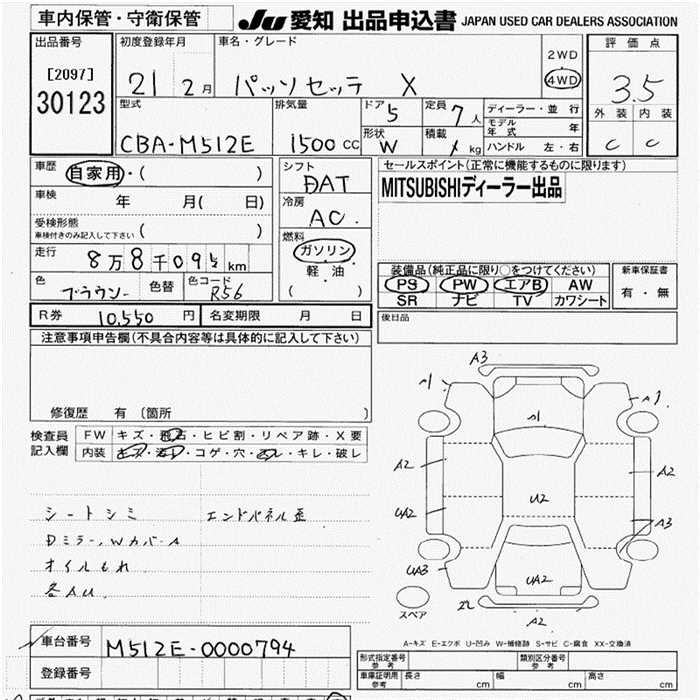 車内保管・守衛保管
JU 愛知 出品申込書 JAPAN USED CAR DEALERS ASSOCIATION
出品番号
[2097]
30123
初度登録年月
21 2月
車名・グレード
パッソセッテ X
2WD
4WD
評価点
3.5
外装 内装
C C
型式
CBA-M512E
排気量
1500 CC
ドア
5
定員
7人
形状
W
積載
kg
ディーラー・並行
モデル年式 年
ハンドル 左・右
車歴
自家用・( )
車検
年 月( 日)
受検形態
車検付きのみ記入して下さい ( )
走行
8万8千09 km
色
ブラウン
色替
色コード
R56
シフト
DAT
冷房
AC
燃料
ガソリン
・
軽油
( )
セールスポイント(正常に機能するものに限ります)
MITSUBISHIディーラー出品
装備品(純正品に限り○をつけてください)
PS PW エアB AW
SR ナビ TV カワシート
新車保証書
有・無
後日品
R券 10,550 円 名変期限 月 日
注意事項申告欄(不具合内容等は具体的に記入して下さい)
修復歴 有(箇所 )
検査員
記入欄
FW キズ・飛石・ヒビ割・リペア跡・X要
内装 キズ・コゲ・穴・キレ・破レ
シートシミ エンドパネル歪
Dミラー、Wカバー A
オイルもれ
各AU.
A3
A1
A2
UA2
UA3
A1
U2
UA2
A2
A3
A2
スペア
A-キズ E-エクボ U-凹み W-補修跡 S-サビ C-腐食 XX-交換済
車台番号 M512E-0000794
登録番号
形式指定番号 参考
類別区分番号 参考
車庫証明用 参考 長さ cm 幅 cm 高さ cm